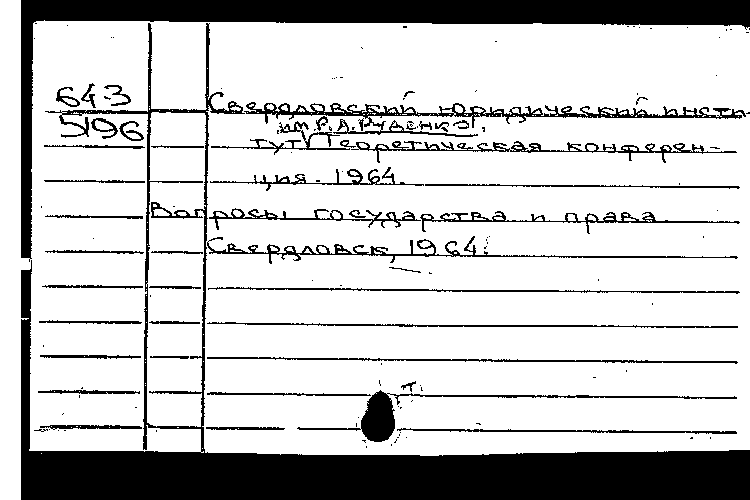 64-3
5196
Свердловский юридический инсти
им. Р. А. Руденко.
тут Теоретическая конферен-
ция. 1964.
Вопросы государства и права.
Свердловск, 1964.